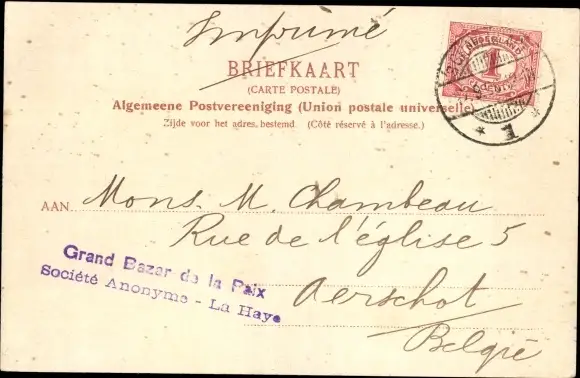 Imprimé
BRIEFKAART
(CARTE POSTALE)
Algemeene Postvereeniging (Union postale universelle)
Zijde voor het adres bestemd. (Côté réservé à l'adresse.)
NEDERLAND
1
1
AAN Mons. M. Chambeau
Rue de l'église 5
Aerschot
België
Grand Bazar de la Paix
Société Anonyme - La Haye